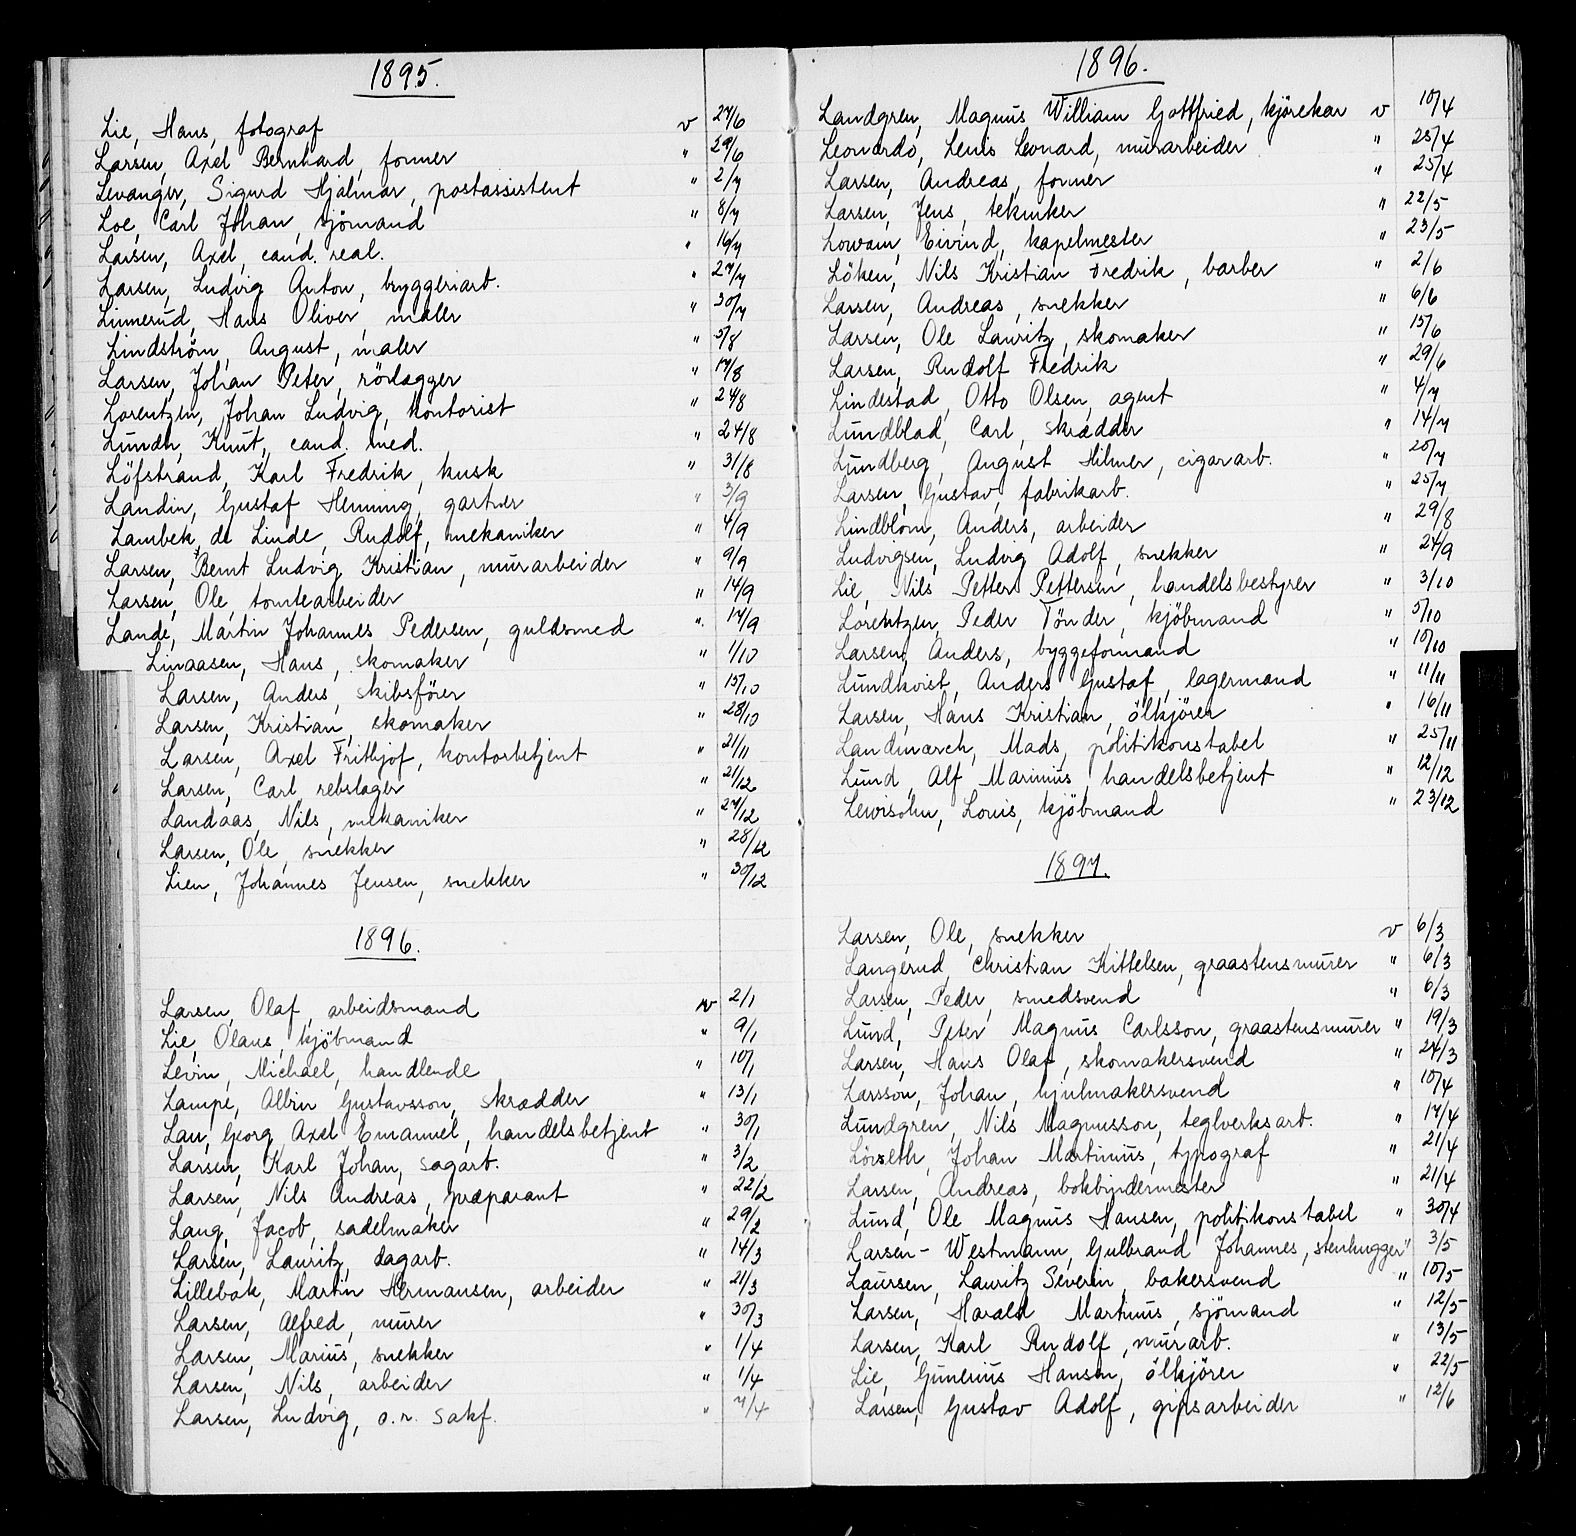 1895.
Lie, Hans, fotograf v 27/6
Larsen, Axel Bernhard, former " 29/6
Levanger, Sigurd Hjalmar, postassistent " 2/7
Loe, Carl Johan, sjömand " 8/7
Larsen, Axel, cand. real. " 16/7
Larsen, Ludvig Anton, bryggeriarb. " 27/7
Linnerud, Hans Oliver, maler " 30/7
Lindström, August, maler " 5/8
Larsen, Johan Peter, rörlægger " 17/8
Lorentzen, Johan Ludvig, kontorist " 24/8
Lundh, Knut, cand. med. " 24/8
Löfstrand, Karl Fredrik, kusk " 31/8
Landin, Gustaf Henning, gartner " 3/9
Lambek, de Linde, Rudolf, mekaniker " 4/9
Larsen, Bernt Ludvig Kristian, murarbeider " 9/9
Larsen, Ole, tomtearbeider " 14/9
Lande, Martin Johannes Pedersen, guldsmed " 14/9
Linaasen, Hans, skomaker " 1/10
Larsen, Anders, skibsförer " 15/10
Larsen, Kristian, skomaker " 28/10
Larsen, Axel Frithjof, kontorbetjent " 21/11
Larsen, Carl rebslager " 21/12
Landaas, Nils, mekaniker " 27/12
Larsen, Ole, snekker " 28/12
Lien, Johannes Jensen, snekker " 30/12
1896.
Larsen, Olaf, arbeidsmand v 2/1
Lie, Olaus, kjöbmand " 9/1
Levin, Michael, handlende " 10/1
Lampe, Albin Gustavsson, skrædder " 13/1
Lau, Georg Axel Emanuel, handelsbetjent " 30/1
Larsen, Karl Johan, sagarb. " 3/2
Larsen, Nils Andreas, præparant " 22/2
Lang, Jacob, sadelmaker " 29/2
Larsen, Lauritz, dagarb. " 14/3
Lillebæk, Martin Hermansen, arbeider " 21/3
Larsen, Alfred, murer " 30/3
Larsen, Marius, snekker " 1/4
Larsen, Nils, arbeider " 1/4
Larsen, Ludvig, o.r. sakf. " 7/4
1896.
Landgren, Magnus William Gottfried, kjörekar v 10/4
Leonardo, Lenis Leonard, murarbeider " 25/4
Larsen, Andreas, former " 25/4
Larsen, Jens, tekniker " 22/5
Lowain, Eivind, kapelmester " 23/5
Löken, Nils Kristian Fredrik, barber " 2/6
Larsen, Andreas, snekker " 6/6
Larsen, Ole Lauritz, skomaker " 15/6
Larsen, Rudolf Fredrik " 29/6
Lindestad, Otto Olsen, agent " 4/7
Lundblad, Carl, skrædder " 14/7
Lundberg, August Hilmer, cigararb. " 20/7
Larsen, Gustav, fabrikarb. " 25/7
Lindblom, Anders, arbeider " 29/8
Ludvigsen, Ludvig Adolf, snekker " 24/9
Lie, Nils Petter Pettersen, handelsbestyrer " 3/10
Lorentzen, Peder Tönder, kjöbmand " 5/10
Larsen, Anders, byggeformand " 10/10
Lundkvist, Anders Gustaf, lagermand " 11/11
Larsen, Hans Kristian, ölkjörer " 16/11
Landmarch, Mads, politikonstabel " 25/11
Lund, Alf Marinius handelsbetjent " 12/12
Lewisohn, Louis, kjöbmand " 23/12
1897.
Larsen, Ole, snekker v 6/3
Langerud, Christian Kittelsen, graastensmurer " 6/3
Larsen, Peder, smedsvend " 6/3
Lund, Peter Magnus Carlsson, graastensmurer " 19/3
Larsen, Hans Olaf, skomakersvend " 24/3
Larsson, Johan, hjulmakersvend " 10/4
Lundgren, Nils Magnusson, teglverksarb. " 14/4
Lövseth, Johan Martinius, typograf " 21/4
Larsen, Andreas, bokbindermester " 21/4
Lund, Ole Magnus Hansen, politikonstabel " 30/4
Larsen-Westmann, Gulbrand Johannes, stenhugger " 3/5
Laursen, Lauritz Severin, bakersvend " 10/5
Larsen, Harald Martinus, sjömand " 12/5
Larsen, Karl Rudolf, murarb. " 13/5
Lie, Gunerius Hansen, ölkjörer " 22/5
Larsen, Gustav Adolf, gipsarbeider " 12/6